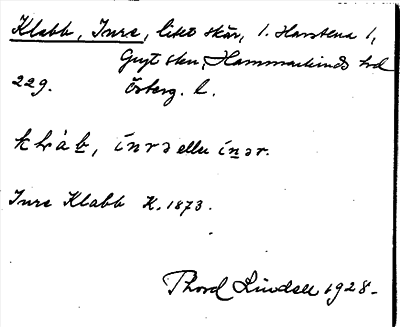 Klabb, Inre, litet skär, l. Harstena 1,
Gryt skn, Hammarkinds hd
229. Österg. l.
Inre Klabb K. 1873.
Thord Lindell 1928.